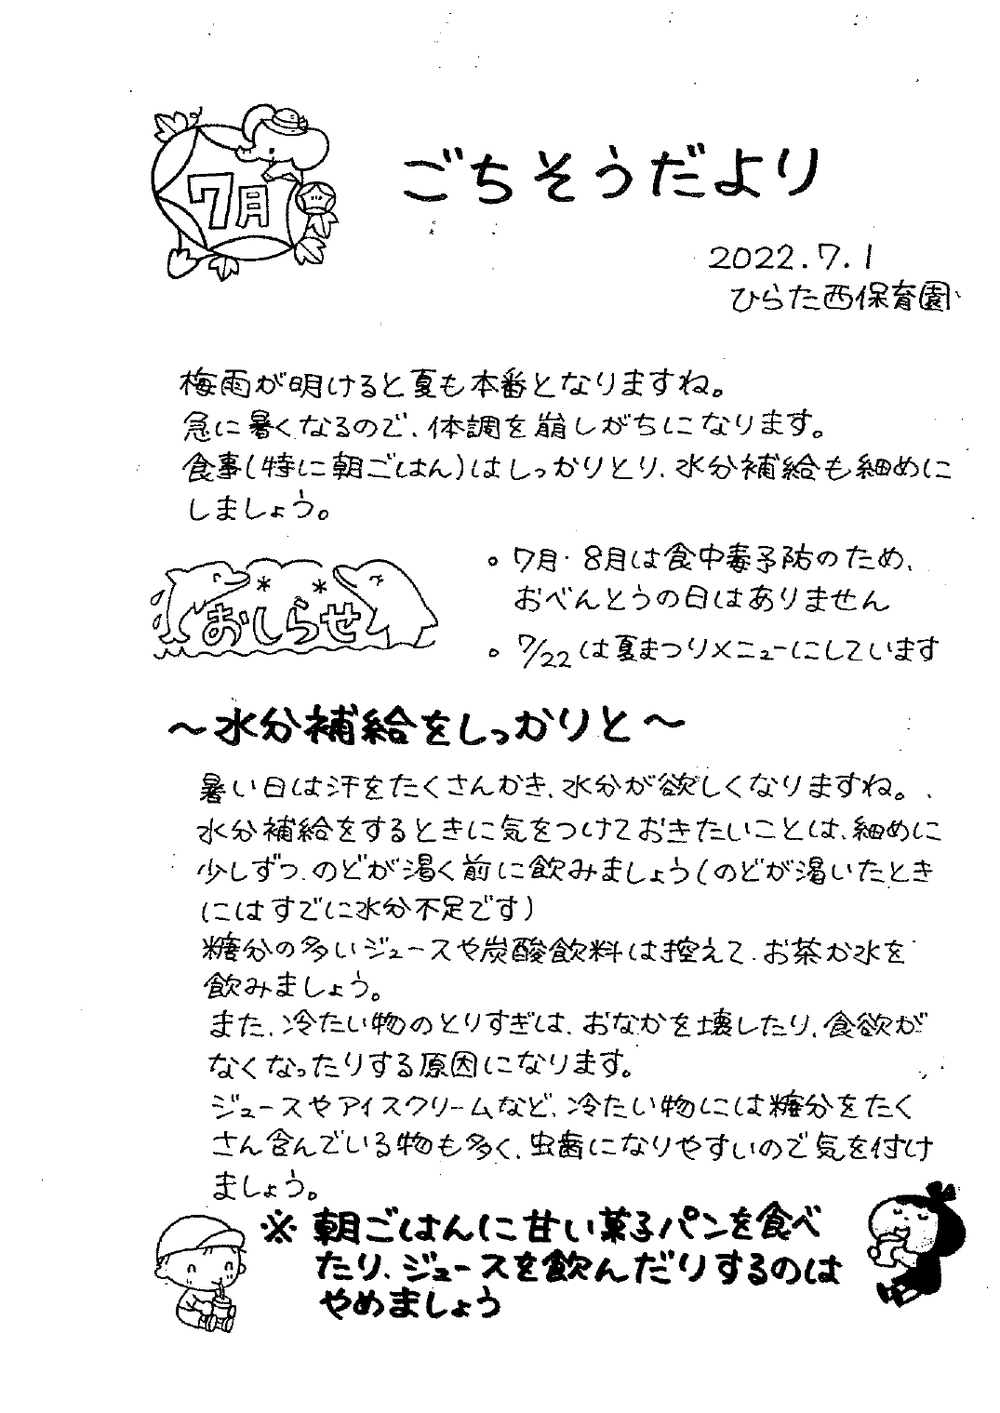 7月
ごちそうだより
2022.7.1
ひらた西保育園
梅雨が明けると夏も本番となりますね。
急に暑くなるので、体調を崩しがちになります。
食事(特に朝ごはん)はしっかりとり、水分補給も細めに
しましょう。
おしらせ
。7月・8月は食中毒予防のため、
おべんとうの日はありません
。7/22は夏まつりメニューにしています
～水分補給をしっかりと～
暑い日は汗をたくさんかき、水分が欲しくなりますね。
水分補給をするときに気をつけておきたいことは、細めに
少しずつ、のどが渇く前に飲みましょう(のどが渇いたとき
にはすでに水分不足です)
糖分の多いジュースや炭酸飲料は控えて、お茶か水を
飲みましょう。
また、冷たい物のとりすぎは、おなかを壊したり、食欲が
なくなったりする原因になります。
ジュースやアイスクリームなど、冷たい物には糖分をたく
さん含んでいる物も多く、虫歯になりやすいので気を付け
ましょう。
※朝ごはんに甘い菓子パンを食べ
たり、ジュースを飲んだりするのは
やめましょう